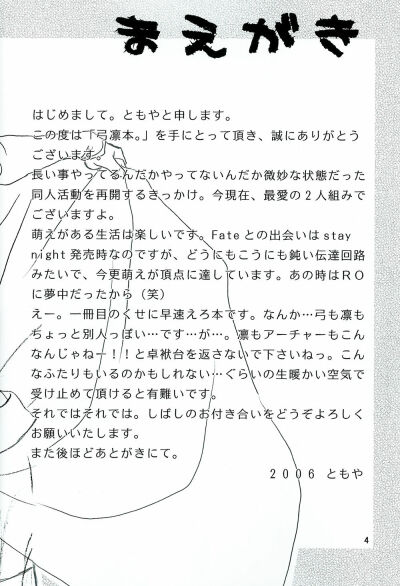 まえがき
はじめまして。ともやと申します。
この度は「弓凛本。」を手にとって頂き、誠にありがとう
ございます。
長い事やってるんだかやってないんだか微妙な状態だった
同人活動を再開するきっかけ。今現在、最愛の2人組みで
ございますよ。
萌えがある生活は楽しいです。Fateとの出会いはstay
night発売時なのですが、どうにもこうにも鈍い伝達回路
みたいで、今更萌えが頂点に達しています。あの時はRO
に夢中だったから（笑）
えー。一冊目のくせに早速えろ本です。なんか…弓も凛も
ちょっと別人っぽい…です…が…。凛もアーチャーもこん
なんじゃねー！！と卓袱台を返さないで下さいねっ。こん
なふたりもいるのかもしれない…ぐらいの生暖かい空気で
受け止めて頂けると有難いです。
それではそれでは。しばしのお付き合いをどうぞよろしく
お願いいたします。
また後ほどあとがきにて。
2006 ともや
4